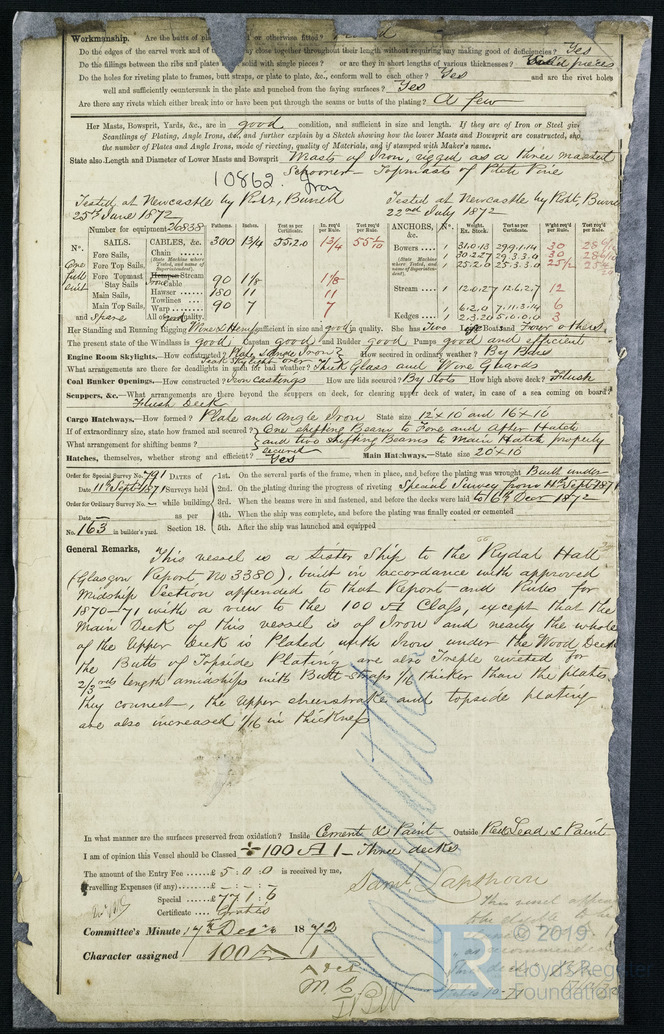 Workmanship. Are the butts of or otherwise fitted?
Do the edges of the carvel work and of lay close together throughout their length without requiring any making good of deficiencies? Yes
Do the fillings between the ribs and plates solid with single pieces? or are they in short lengths of various thicknesses? Solid pieces
Do the holes for riveting plate to frames, butt straps, or plate to plate, &c., conform well to each other? Yes and are the rivet holes
well and sufficiently countersunk in the plate and punched from the faying surfaces? Yes
Are there any rivets which either break into or have been put through the seams or butts of the plating? A few
Her Masts, Bowsprit, Yards, &c., are in good condition, and sufficient in size and length. If they are of Iron or Steel give
Scantlings of Plating, Angle Irons, &c., and further explain by a Sketch showing how the lower Masts and Bowsprit are constructed,
the number of Plates and Angle Irons, mode of riveting, quality of Materials, and if stamped with Maker's name.
State also Length and Diameter of Lower Masts and Bowsprit Masts of Iron, rigged as a three masted
Schooner - Topmasts of Pitch Pine
10862 Iron
Tested at Newcastle by Robt. Burrell Tested at Newcastle by Robt.
25th June 1872 22nd July 1872
Number for equipment 26838 Fathoms. Inches. Test as per Certificate. In. req'd per Rule. Test req'd per Rule. ANCHORS, &c. Nº. Weight. Ex. Stock. Test as per Certificate. Wght req'd per Rule. Test req'd per Rule.
Nº. SAILS. CABLES, &c. 300 1 3/4 55.2.0 1 3/4 55 1/10
Fore Sails, Chain Bowers 1 31.0.13 29.9.1.14 30
One full suit Fore Top Sails, 1 30.2.27 29.3.3.0 30
Fore Topmast Stay Sails Stream Cable 90 1 1/8 1 1/8 1 25.2.0 25.3.3.0 25 1/2
Main Sails, Hawser 180 11 11 Stream 1 12.0.27 12.6.2.7 12
Main Top Sails, Towlines
Warp 90 7 7 1 6.2.0 7.11.3.14 6
and Spare All of good quality. Kedges 1 2.3.20 5.0.0.0 3
Her Standing and Running Rigging Wire & Hemp sufficient in size and good in quality. She has Two Life Boats and Four others
The present state of the Windlass is good Capstan good and Rudder good Pumps good and efficient
Engine Room Skylights.—How constructed? Plate & Angle Iron Teak Skylight over How secured in ordinary weather? By Bars
What arrangements are there for deadlights in such for bad weather? Thick Glass and Wire Guards
Coal Bunker Openings.—How constructed? Iron castings How are lids secured? By Slots How high above deck? Flush
Scuppers, &c.—What arrangements are there beyond the scuppers on deck, for clearing upper deck of water, in case of a sea coming on board?
Flush Deck
Cargo Hatchways.—How formed? Plate and Angle Iron State size 12 x 10 and 16 x 10
If of extraordinary size, state how framed and secured? One shifting Beam to Fore and After Hatch
What arrangement for shifting beams? and two shifting Beams to Main Hatch properly
secured
Hatches, themselves, whether strong and efficient? Yes Main Hatchways.—State size 20 x 10
Order for Special Survey No. 791 Date 11th Sept 1871
Order for Ordinary Survey No. — Date —
No. 163 in builder's yard.
DATES of Surveys held while building as per Section 18.
1st. On the several parts of the frame, when in place, and before the plating was wrought Built under
2nd. On the plating during the progress of riveting Special Survey from 11th Sept 1871
3rd. When the beams were in and fastened, and before the decks were laid to 6th Decr 1872
4th. When the ship was complete, and before the plating was finally coated or cemented
5th. After the ship was launched and equipped
General Remarks, This vessel is a Sister Ship to the "Rydal Hall"
(Glasgow Report No 3380), built in accordance with approved
Midship Section appended to that Report and Rules for
1870-71 with a view to the 100 A Class, except that the
Main Deck of this vessel is of Iron and nearly the whole
of the Upper Deck is Plated with Iron under the Wood Deck
the Butts of Topside Plating are also Treple riveted for
2/3rds length amidships with Butt Straps 1/16 thicker than the plates
they connect, the upper sheerstrake and topside plating
are also increased 1/16 in thickness
In what manner are the surfaces preserved from oxidation? Inside Cement & Paint Outside Red Lead & Paint
I am of opinion this Vessel should be Classed 100 A 1 - Three decks
The amount of the Entry Fee £ 5 : 0 : 0 is received by me,
Travelling Expenses (if any) £ - : - : -
Special £ 77 : 1 : 6
Certificate Gratis
Saml. Lapthorn
Committee's Minute 17th Decr 1872
Character assigned 100 A 1
© 2019
LR
Lloyd's Register
Foundation